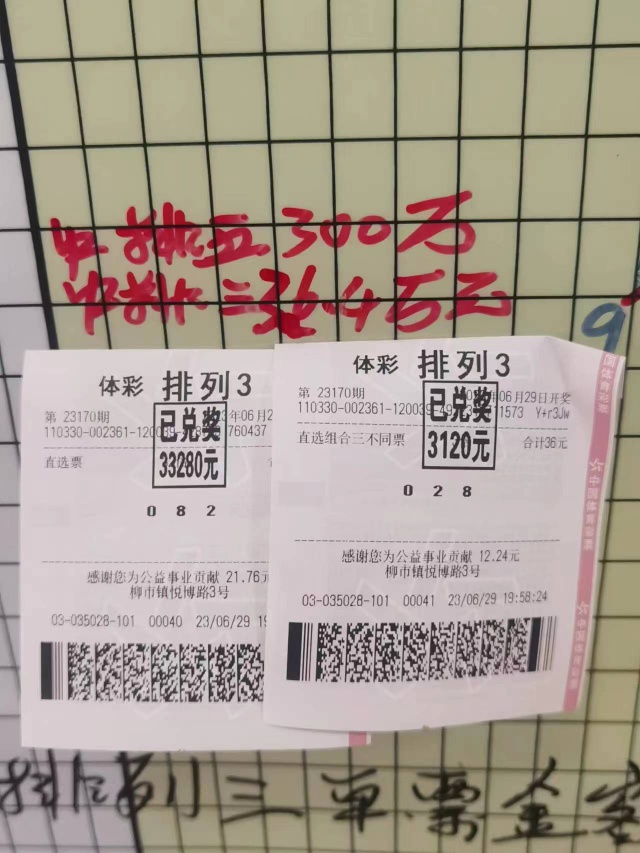 中排五300万
中排三36.4万元
9
体彩 排列3
第 23170期
110330-002361-120039
760437
已兑奖
33280元
直选票
0 8 2
感谢您为公益事业贡献 21.76元
柳市镇悦博路3号
03-035028-101 00040 23/06/29 19
体彩 排列3
第 23170期
年06月29日开奖
110330-002361-120039
11573 Y+r3Jw
已兑奖
3120元
直选组合三不同票 合计36元
0 2 8
感谢您为公益事业贡献 12.24元
柳市镇悦博路3号
03-035028-101 00041 23/06/29 19:58:24
中国体育彩票
排列三单票全